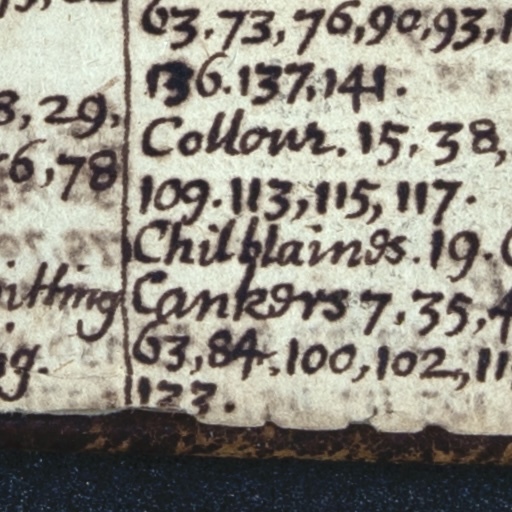 8, 29,
56, 78
itting
ig.
63. 73, 76, 90, 93, 1
136. 137, 141.
Collour. 15. 38,
109. 113, 115, 117.
Chilblaines. 19.
Cankers 7, 35, 4
63, 84, 100, 102, 11
123.